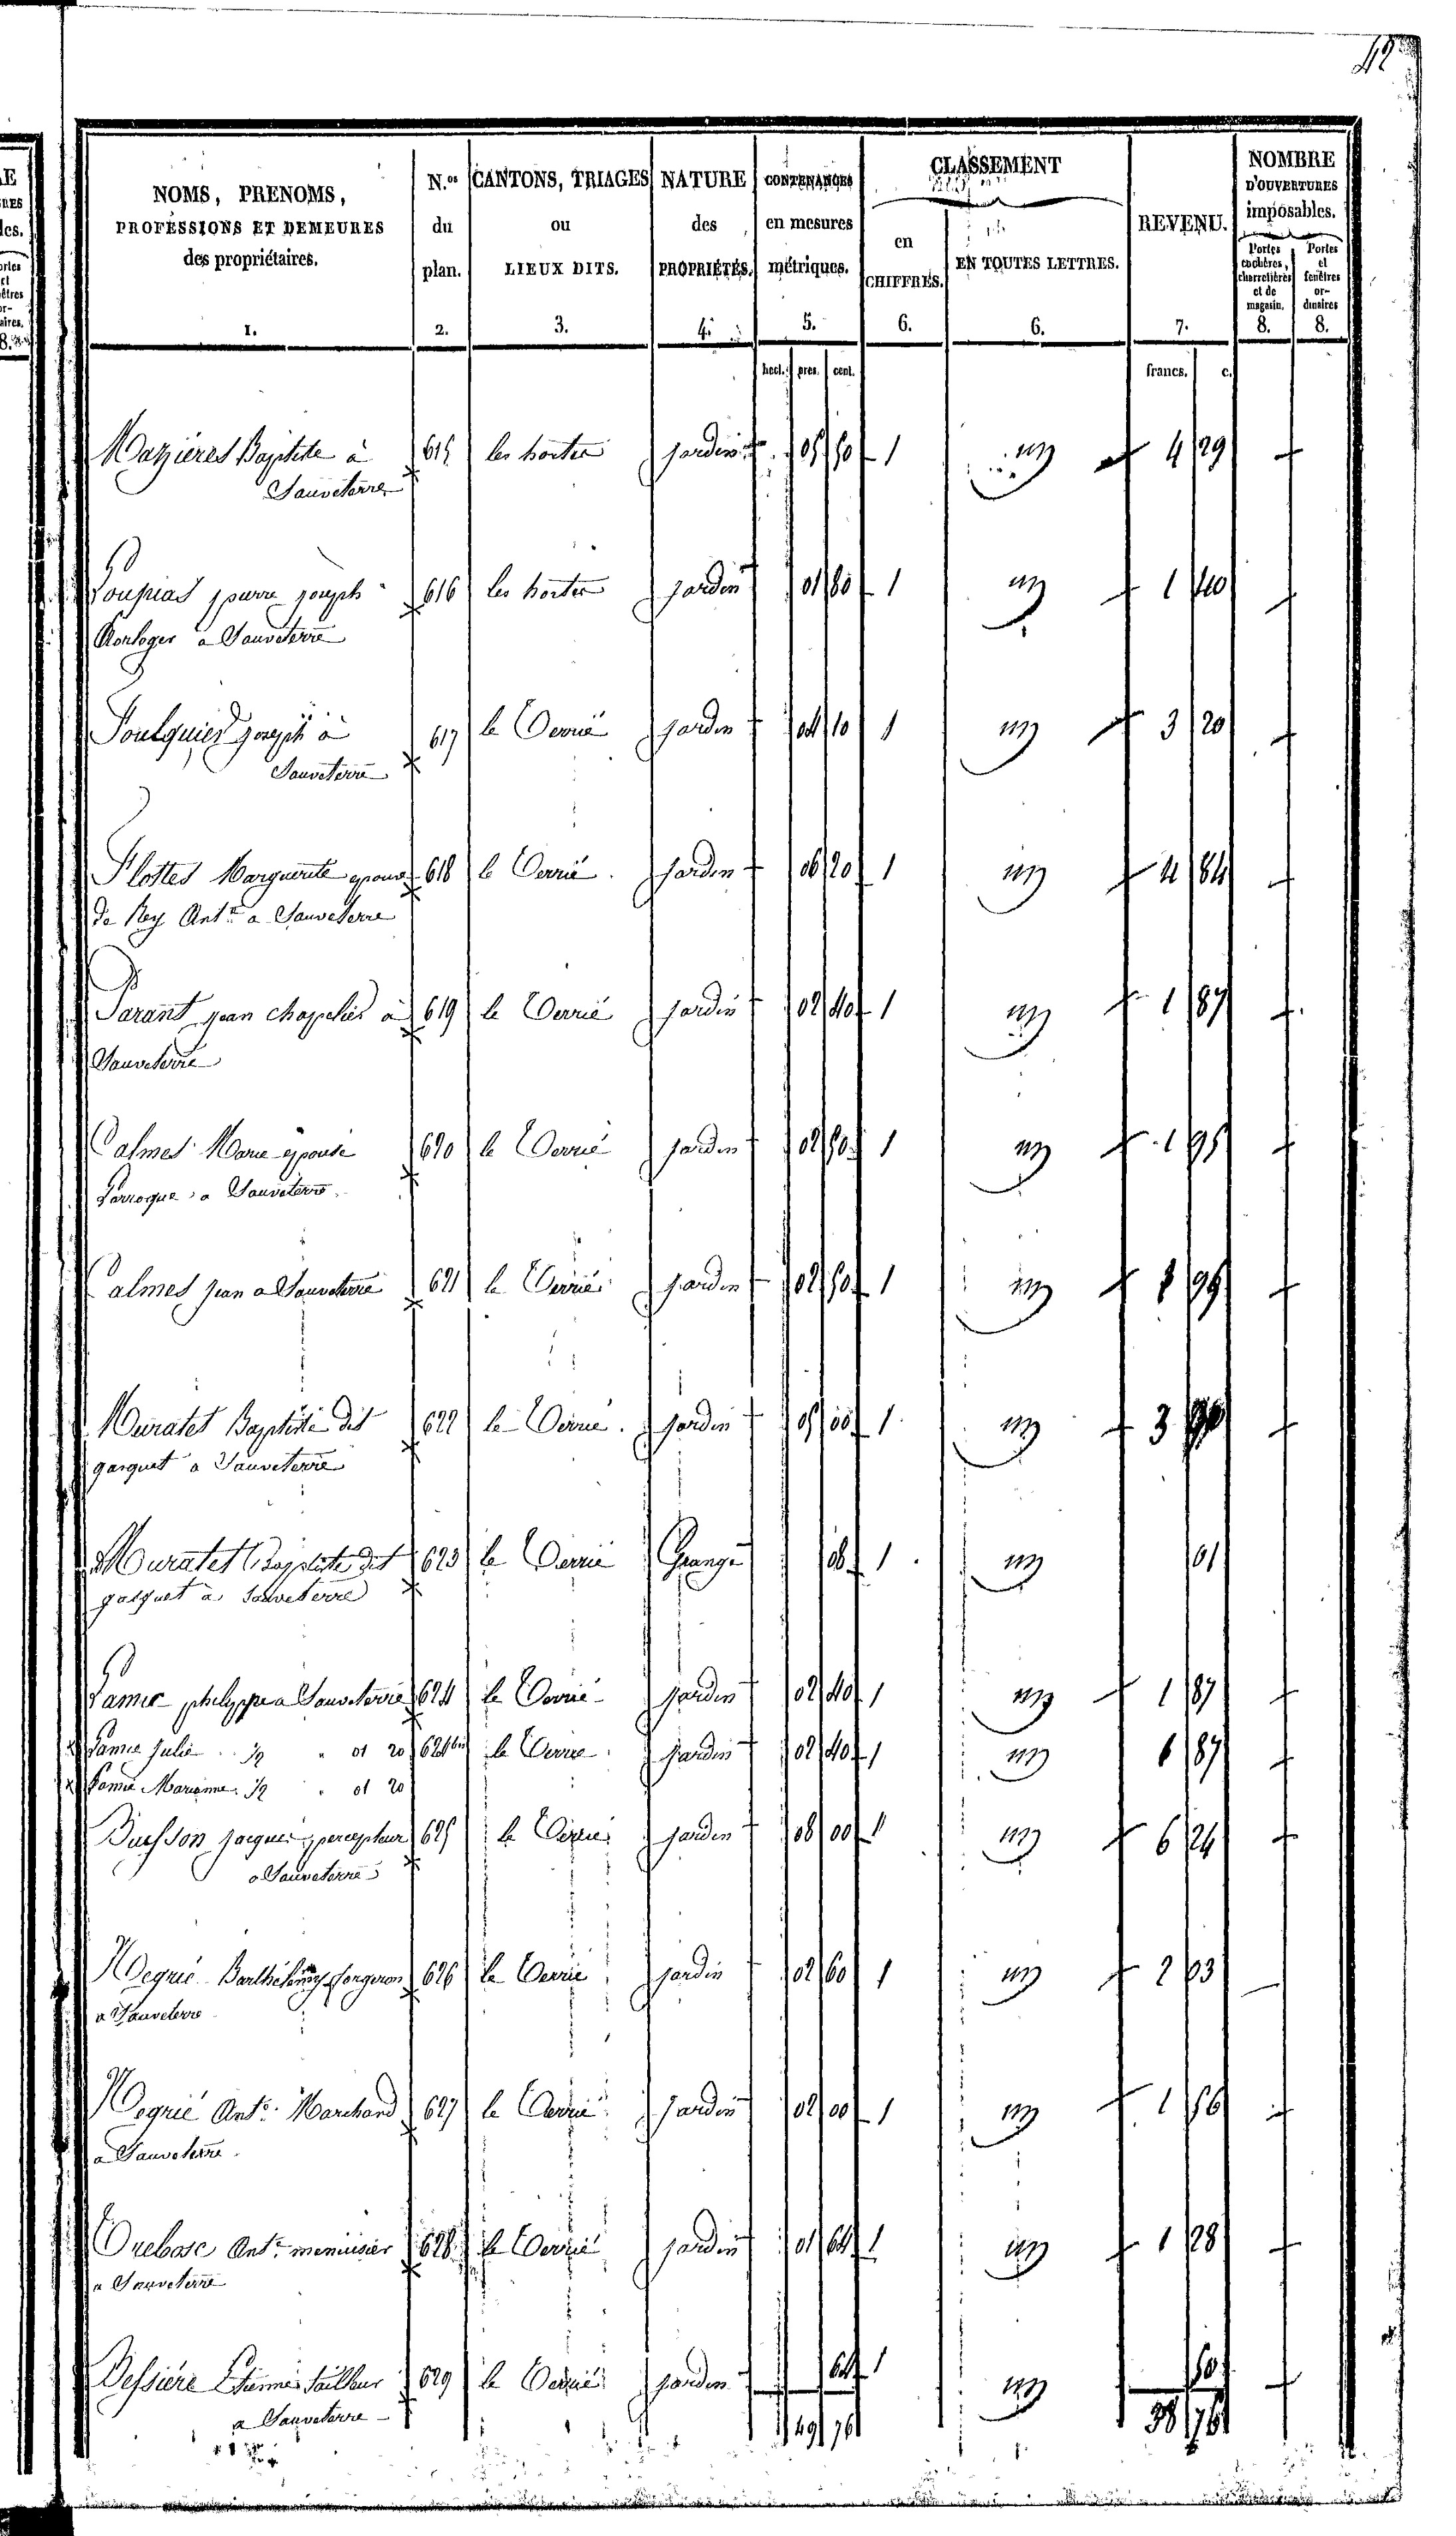 42
NOMS, PRENOMS,
PROFESSIONS ET DEMEURES
des propriétaires.
1.
N.os
du
plan.
2.
CANTONS, TRIAGES
ou
LIEUX DITS.
3.
NATURE
des
PROPRIÉTÉS.
4.
CONTENANCES
en mesures
métriques.
5.
CLASSEMENT
en
CHIFFRES.
6.
EN TOUTES LETTRES.
6.
REVENU.
7.
NOMBRE
D'OUVERTURES
imposables.
Portes
cochères,
charretières
et de
magasin.
8.
Portes
et
fenêtres
or-
dinaires
8.
hect. pres. cent. francs. c.
Mazières Baptiste à 615 les hortes jardin 05 50 1 un 4 29
Sauveterre
Loupias pierre joseph 616 les hortes jardin 01 80 1 un 1 40
horloger a Sauveterre
Foulquier joseph à 617 le Verrié jardin 04 10 1 un 3 20
Sauveterre
Flottes Marguerite epouse 618 le Verrié jardin 06 20 1 un 4 84
de Rey Ant.e a Sauveterre
Parant jean chapelier à 619 le Verrié jardin 02 40 1 un 1 87
Sauveterre
Calmes Marie epouse 620 le Verrié jardin 02 50 1 un 1 95
Larroque a Sauveterre
Calmes jean a Sauveterre 621 le Verrié jardin 02 50 1 un 1 95
Muratet Baptiste dit 622 le Verrié jardin 05 00 1 un 3 90
gasquet a Sauveterre
Muratet Baptiste dit 623 le Verrié Grange 08 1 un 01
gasquet à Sauveterre
Lamic philippe a Sauveterre 624 le Verrié jardin 02 40 1 un 1 87
Lamic Julie 1/2 " 01 20 624 bis le Verrié jardin 02 40 1 un 1 87
Lamic Marianne 1/2 " 01 20
Buisson jacques percepteur 625 le Verrié jardin 08 00 1 un 6 24
a Sauveterre
Negrié Barthélemy forgeron 626 le Verrié jardin 02 60 1 un 2 03
a Sauveterre
Negrié Ant.e Marchand 627 le Verrié jardin 02 00 1 un 1 56
a Sauveterre
Ant.e menuisier 628 le Verrié jardin 01 64 1 un 1 28
a Sauveterre
Bessière Etienne tailleur 629 le Verrié jardin 64 1 un 50
a Sauveterre
49 76 38 76